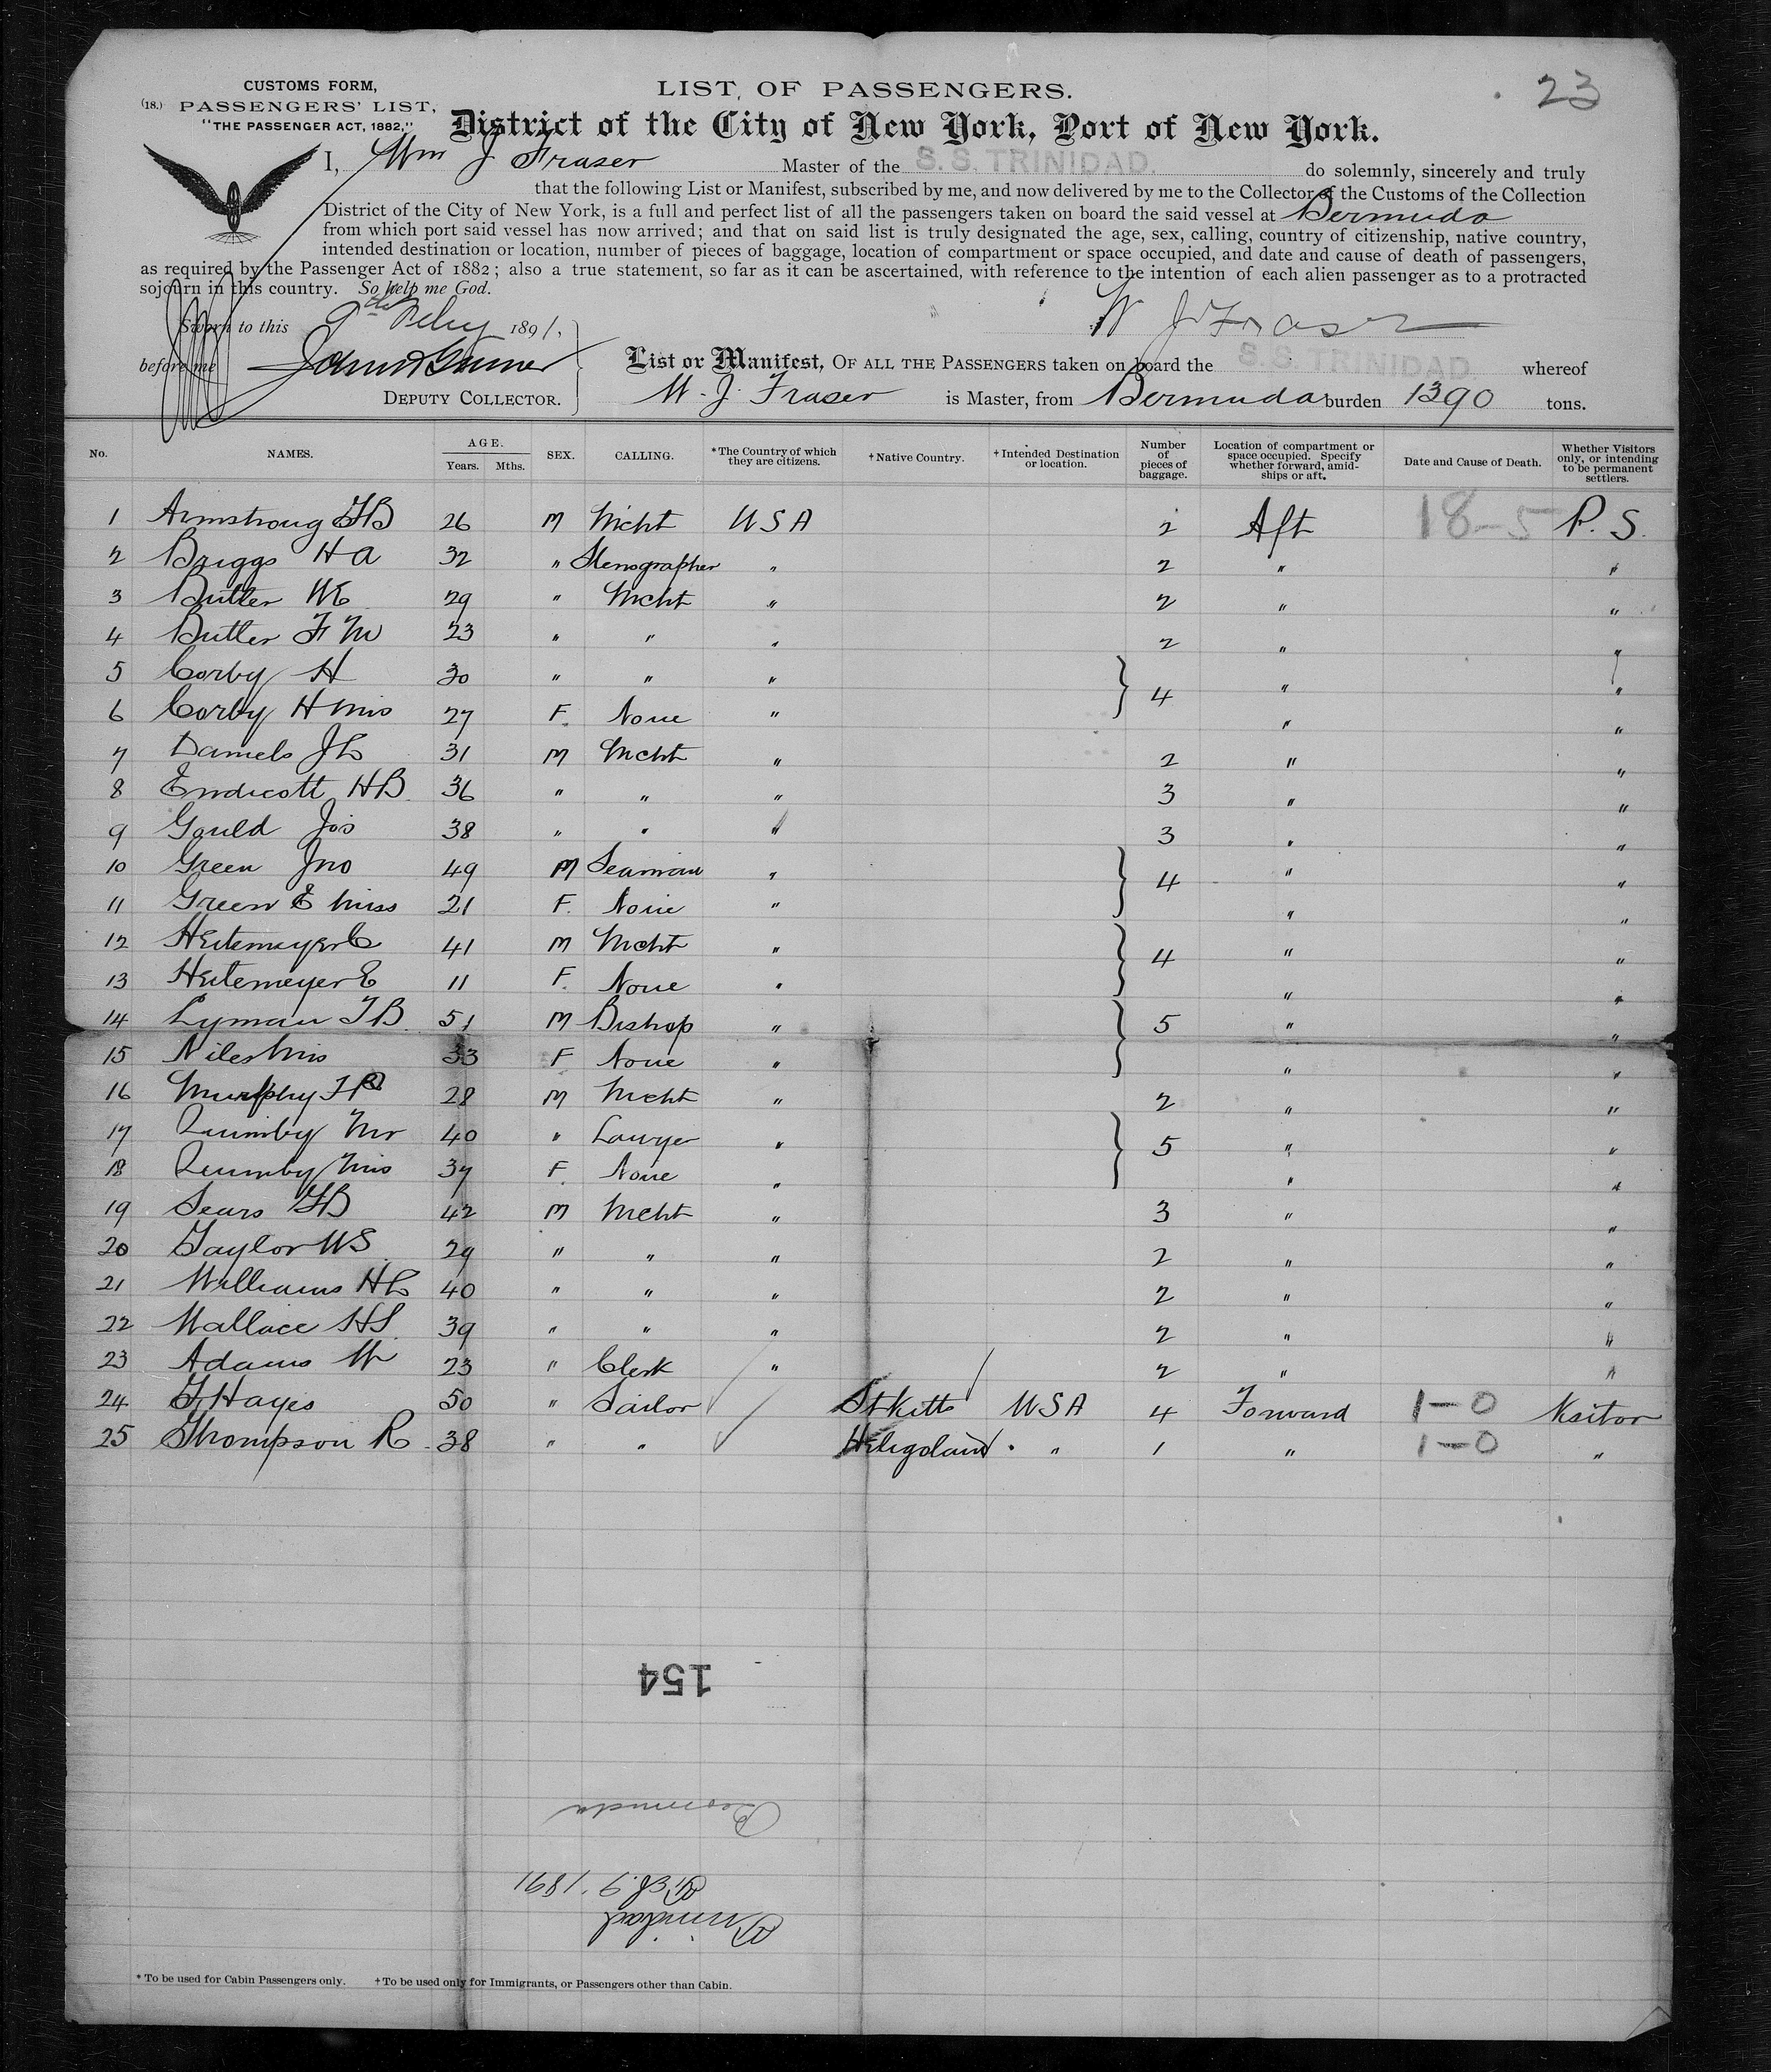 23
CUSTOMS FORM,
(18.) PASSENGERS' LIST,
"THE PASSENGER ACT, 1882,"
LIST OF PASSENGERS.
District of the City of New York, Port of New York.
I, Wm J Fraser Master of the S. S. TRINIDAD. do solemnly, sincerely and truly
that the following List or Manifest, subscribed by me, and now delivered by me to the Collector of the Customs of the Collection
District of the City of New York, is a full and perfect list of all the passengers taken on board the said vessel at Bermuda
from which port said vessel has now arrived; and that on said list is truly designated the age, sex, calling, country of citizenship, native country,
intended destination or location, number of pieces of baggage, location of compartment or space occupied, and date and cause of death of passengers,
as required by the Passenger Act of 1882; also a true statement, so far as it can be ascertained, with reference to the intention of each alien passenger as to a protracted
sojourn in this country. So help me God.
Sworn to this 9th Feby 1891. W J Fraser
before me
DEPUTY COLLECTOR.
List or Manifest, OF ALL THE PASSENGERS taken on board the S. S. TRINIDAD whereof
W. J. Fraser is Master, from Bermuda burden 1390 tons.
No. NAMES. AGE. Years. Mths. SEX. CALLING. *The Country of which they are citizens. †Native Country. †Intended Destination or location. Number of pieces of baggage. Location of compartment or space occupied. Specify whether forward, amidships or aft. Date and Cause of Death. Whether Visitors only, or intending to be permanent settlers.
1 Armstrong FB 26 M Mcht USA 2 Aft 18-5 P. S.
2 Briggs H A 32 " Stenographer " 2 " "
3 Butler WE 29 " Mcht " 2 " "
4 Butler F M 23 " " " 2 " "
5 Corby H 30 " " " } 4 " "
6 Corby H Mrs 27 F. None " " "
7 Daniels J L 31 M Mcht " 2 " "
8 Endicott HB 36 " " " 3 " "
9 Gould Jos 38 " " " 3 " "
10 Green Jno 49 M Seaman " } 4 " "
11 Green E Miss 21 F. None " " "
12 Heitemeyer C 41 M Mcht " } 4 " "
13 Heitemeyer E 11 F. None " " "
14 Lyman T B 51 M Bishop " } 5 " "
15 Niles Mrs 33 F None " " "
16 Murphy 28 M Mcht " 2 " "
17 Quimby Mr 40 " Lawyer " } 5 " "
18 Quimby Mrs 37 F. None " " "
19 Sears FB 42 M Mcht " 3 " "
20 Taylor WS 29 " " " 2 " "
21 Williams H L 40 " " " 2 " "
22 Wallace HS 39 " " " 2 " "
23 Adams W 23 " Clerk " 2 " "
24 Hayes 50 " Sailor St Kitts USA 4 Forward 1-0 Visitor
25 Thompson R 38 " " Heligoland " 1 " 1-0 "
154
Bermuda
Feb. 9. 1891
Trinidad
* To be used for Cabin Passengers only. †To be used only for Immigrants, or Passengers other than Cabin.